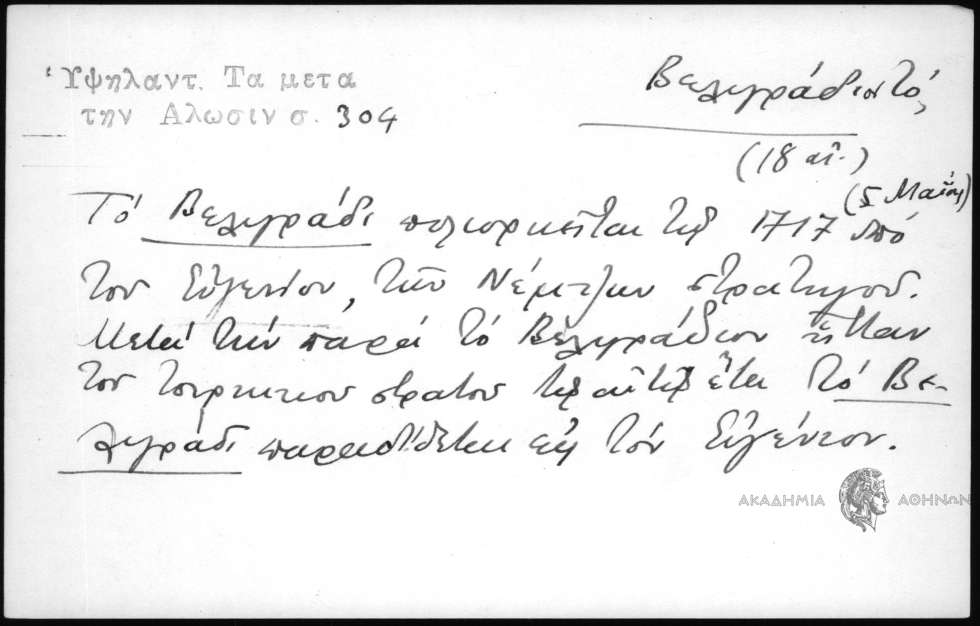 Ὑψηλαντ. Τα μετα
την Αλωσιν σ. 304
Βελιγράδιον τό,
(18 αἰ.)
(5 Μαΐου)
Τό Βελιγράδι πολιορκεῖται τῷ 1717 ὑπό
του Εὐγενίου, τῶν Νέμτζων στρατηγοῦ.
Μετά την παρά τό Βελιγράδιον ἧτταν
του τουρκικου στρατου τῷ αὐτῷ ἔτει τό Βε-
λιγράδι παραδίδεται εἰς τόν Εὐγένιον.
ΑΚΑΔΗΜΙΑ ΑΘΗΝΩΝ